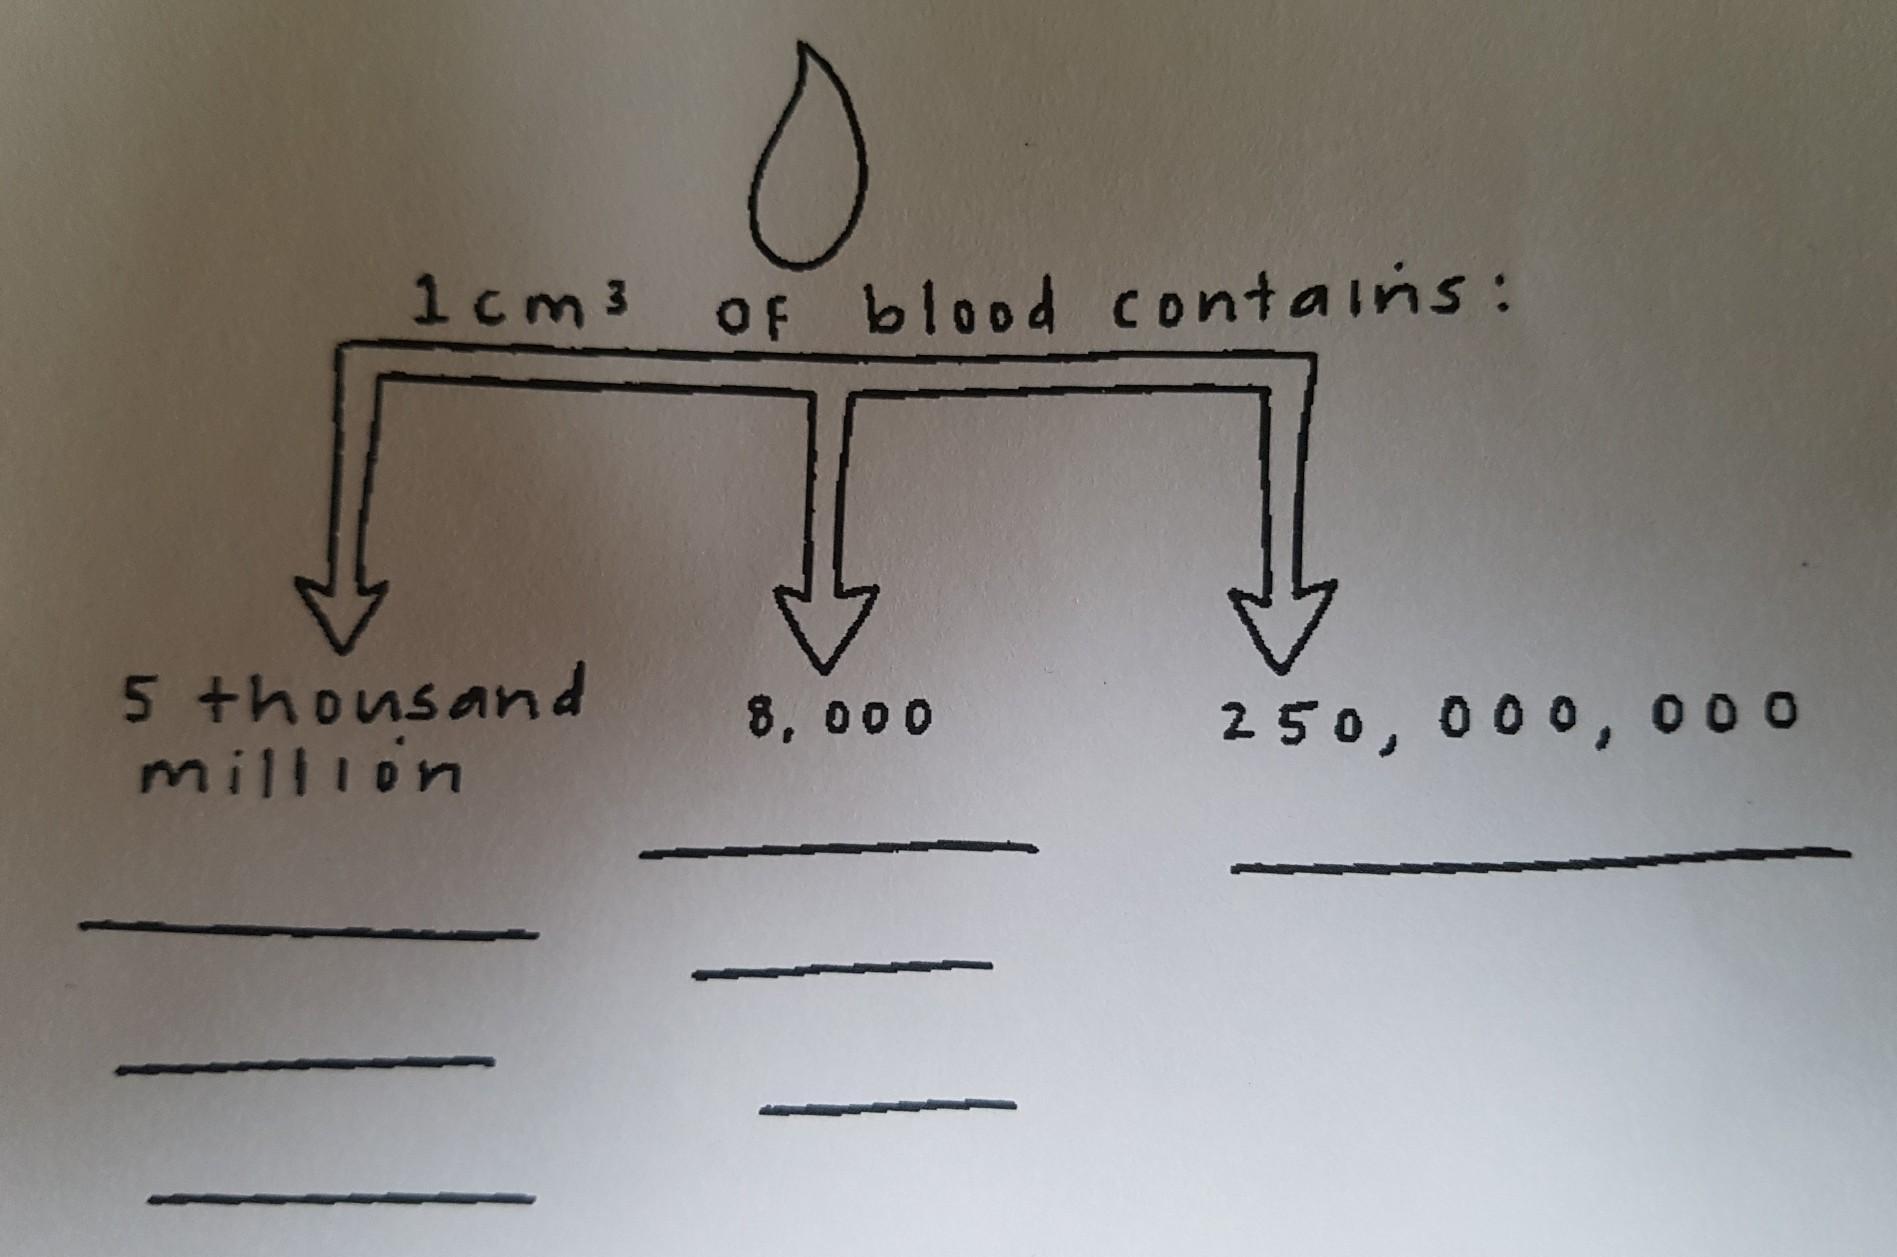 1cm³ of blood contains:
5 thousand
million
8,000
250,000,000